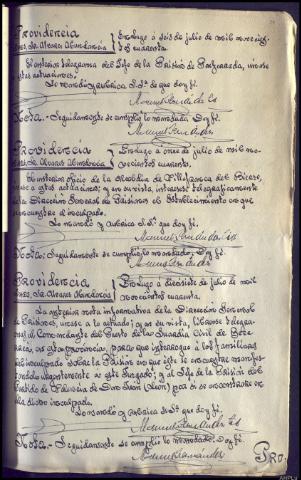 Providencia
Juez, Sr. Alvarez Abundancia
En Lugo a seis de julio de mil novecien-
tos cuarenta.
El anterior telegrama del Jefe de la Prisión de Ponferrada, unase
a estas actuaciones.
Lo mandó y rubrica el Sr. de que doy fé.
Nota.- Seguidamente se cumplió lo mandado. Doy fé.
Providencia
Juez, Sr. Alvarez Abundancia
En Lugo a once de julio de mil no-
vecientos cuarenta.
El anterior oficio de la Alcaldía de Villafranca del Bierzo,
unase a estas actuaciones; y en su vista, interese telegraficamente
de la Dirección General de Prisiones el Establecimiento en que
se encuentre el inculpado.
Lo mandó y rubrica el Sr. que doy fé.
Nota.- Seguidamente se cumplió lo mandado. Doy fé.
Providencia
Juez, Sr. Alvarez Abundancia
En Lugo a diecisiete de julio de mil
novecientos cuarenta.
La anterior nota informativa de la Dirección General
de Prisiones, unase a lo actuado; y en su vista, librense telegra-
mas al Comandante del Puesto de la Guardia Civil de
en esta provincia, para que interrogue a los familiares
del inculpado sobre la Prisión en que éste se encuentre manifes-
tandolo urgentemente a este Juzgado; y al Jefe de la Prisión del
Partido de Valencia de Don Juan (León) por si se encontrase en
ella dicho inculpado.
Lo mandó y rubrica el Sr. de que doy fé.
Nota.- Seguidamente se cumplió lo mandado. Doy fé.
Pro-
AHPLu